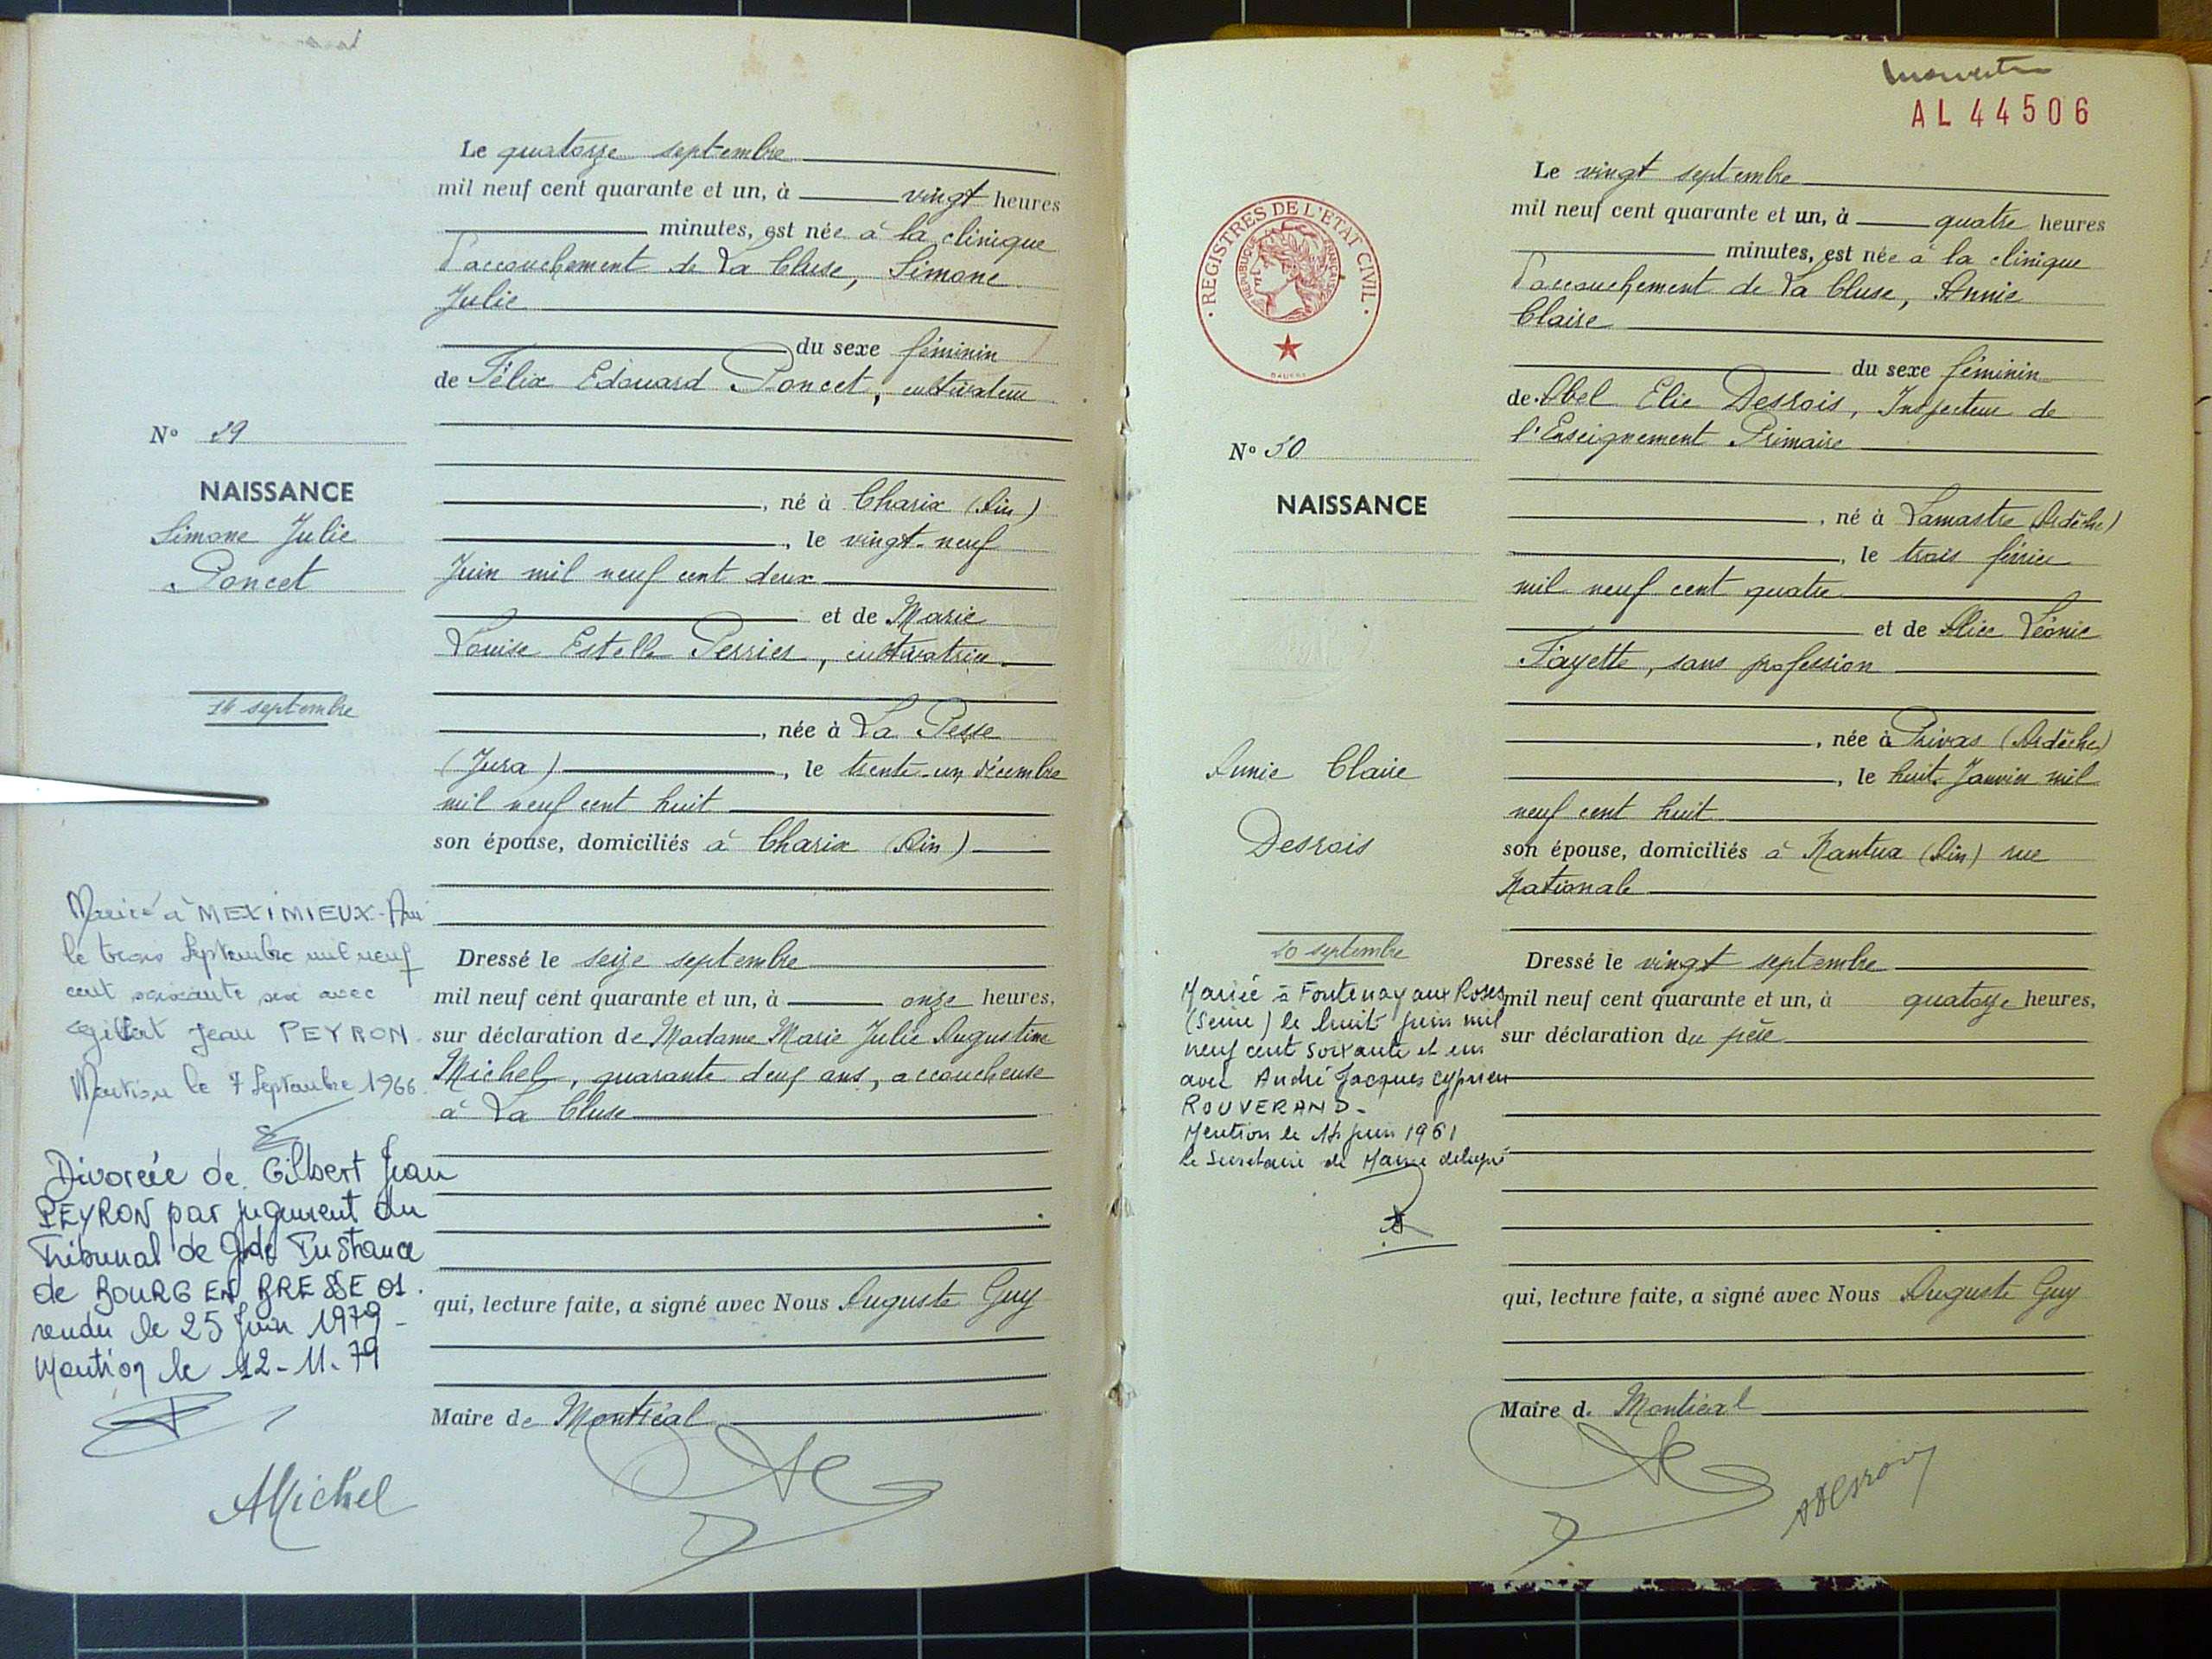 Le quatorze septembre
mil neuf cent quarante et un, à vingt heures
minutes, est née à la clinique
d'accouchement de La Cluse, Simone
Julie
du sexe féminin
de Félix Edouard Poncet, cultivateur
, né à Charix (Ain)
, le vingt-neuf
Juin mil neuf cent deux
et de Marie
Louise Estelle Perrier, cultivatrice
, née à La Pesse
(Jura), le trente-un décembre
mil neuf cent huit
son épouse, domiciliés à Charix (Ain)
Dressé le seize septembre
mil neuf cent quarante et un, à onze heures,
sur déclaration de Madame Marie Julie Augustine
Michel, quarante deux ans, accoucheuse
à La Cluse
qui, lecture faite, a signé avec Nous Auguste Guy
Maire de Montréal
No 29
NAISSANCE
Simone Julie
Poncet
14 septembre
Mariée à MEXIMIEUX-Ain
le trois Septembre mil neuf
cent soixante six avec
Gilbert Jean PEYRON
Mention le 7 Septembre 1966
Divorcée de Gilbert Jean
PEYRON par jugement du
Tribunal de Gde Instance
de BOURG EN BRESSE 01.
rendu le 25 Juin 1979-
Mention le 12-11-79
AMichel
AL 44506
REGISTRES DE L'ETAT CIVIL
REPUBLIQUE FRANCAISE
Le vingt septembre
mil neuf cent quarante et un, à quatre heures
minutes, est née à la clinique
d'accouchement de La Cluse, Annie
Claire
du sexe féminin
de Abel Elie Desrois, Inspecteur de
l'Enseignement Primaire
, né à Lamastre (Ardèche)
, le trois février
mil neuf cent quatre
et de Alice Léonie
Fayette, sans profession
, née à Privas (Ardèche)
, le huit Janvier mil
neuf cent huit
son épouse, domiciliés à Nantua (Ain) rue
Nationale
Dressé le vingt septembre
mil neuf cent quarante et un, à quatorze heures,
sur déclaration du père
qui, lecture faite, a signé avec Nous Auguste Guy
Maire d. Montréal
No 30
NAISSANCE
Annie Claire
Desrois
20 septembre
Mariée à Fontenay aux Roses
(Seine) le huit juin mil
neuf cent soixante et un
avec André Jacques Cyprien
ROUVERAND-
Mention le 14 juin 1961
le Secrétaire de Mairie délégué
ADesrois